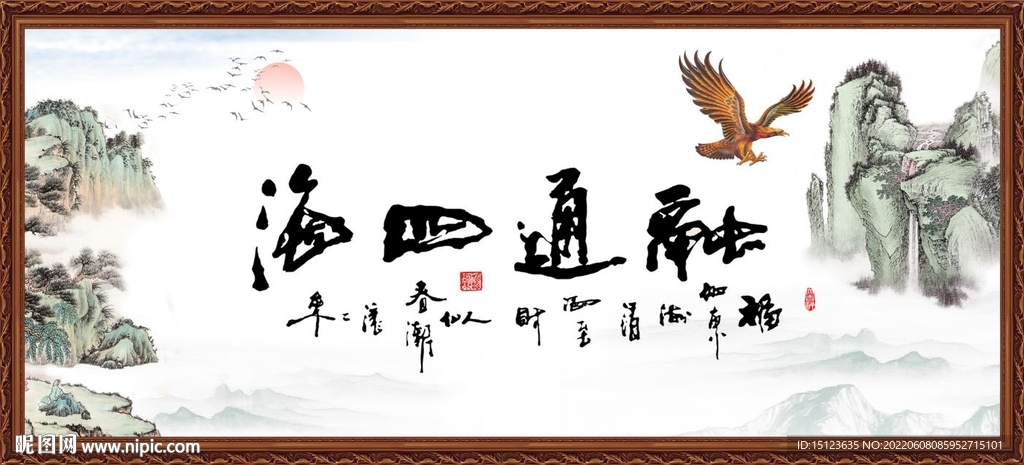 融通四海
福如東海至
財似春潮滚二来
昵图网 www.nipic.com
ID:15123635 NO:20220608085952715101